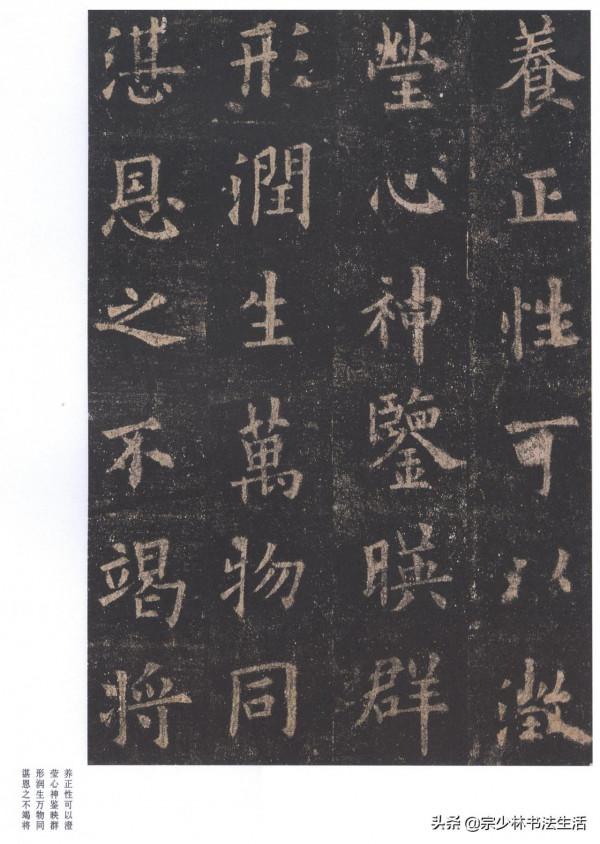 養正性可以澂
瑩心神鑒暎群
形潤生萬物同
湛恩之不竭將
养正性可以澄
莹心神鉴映群
形润生万物同
谌恩之不竭将
头条 @宗少林书法生活